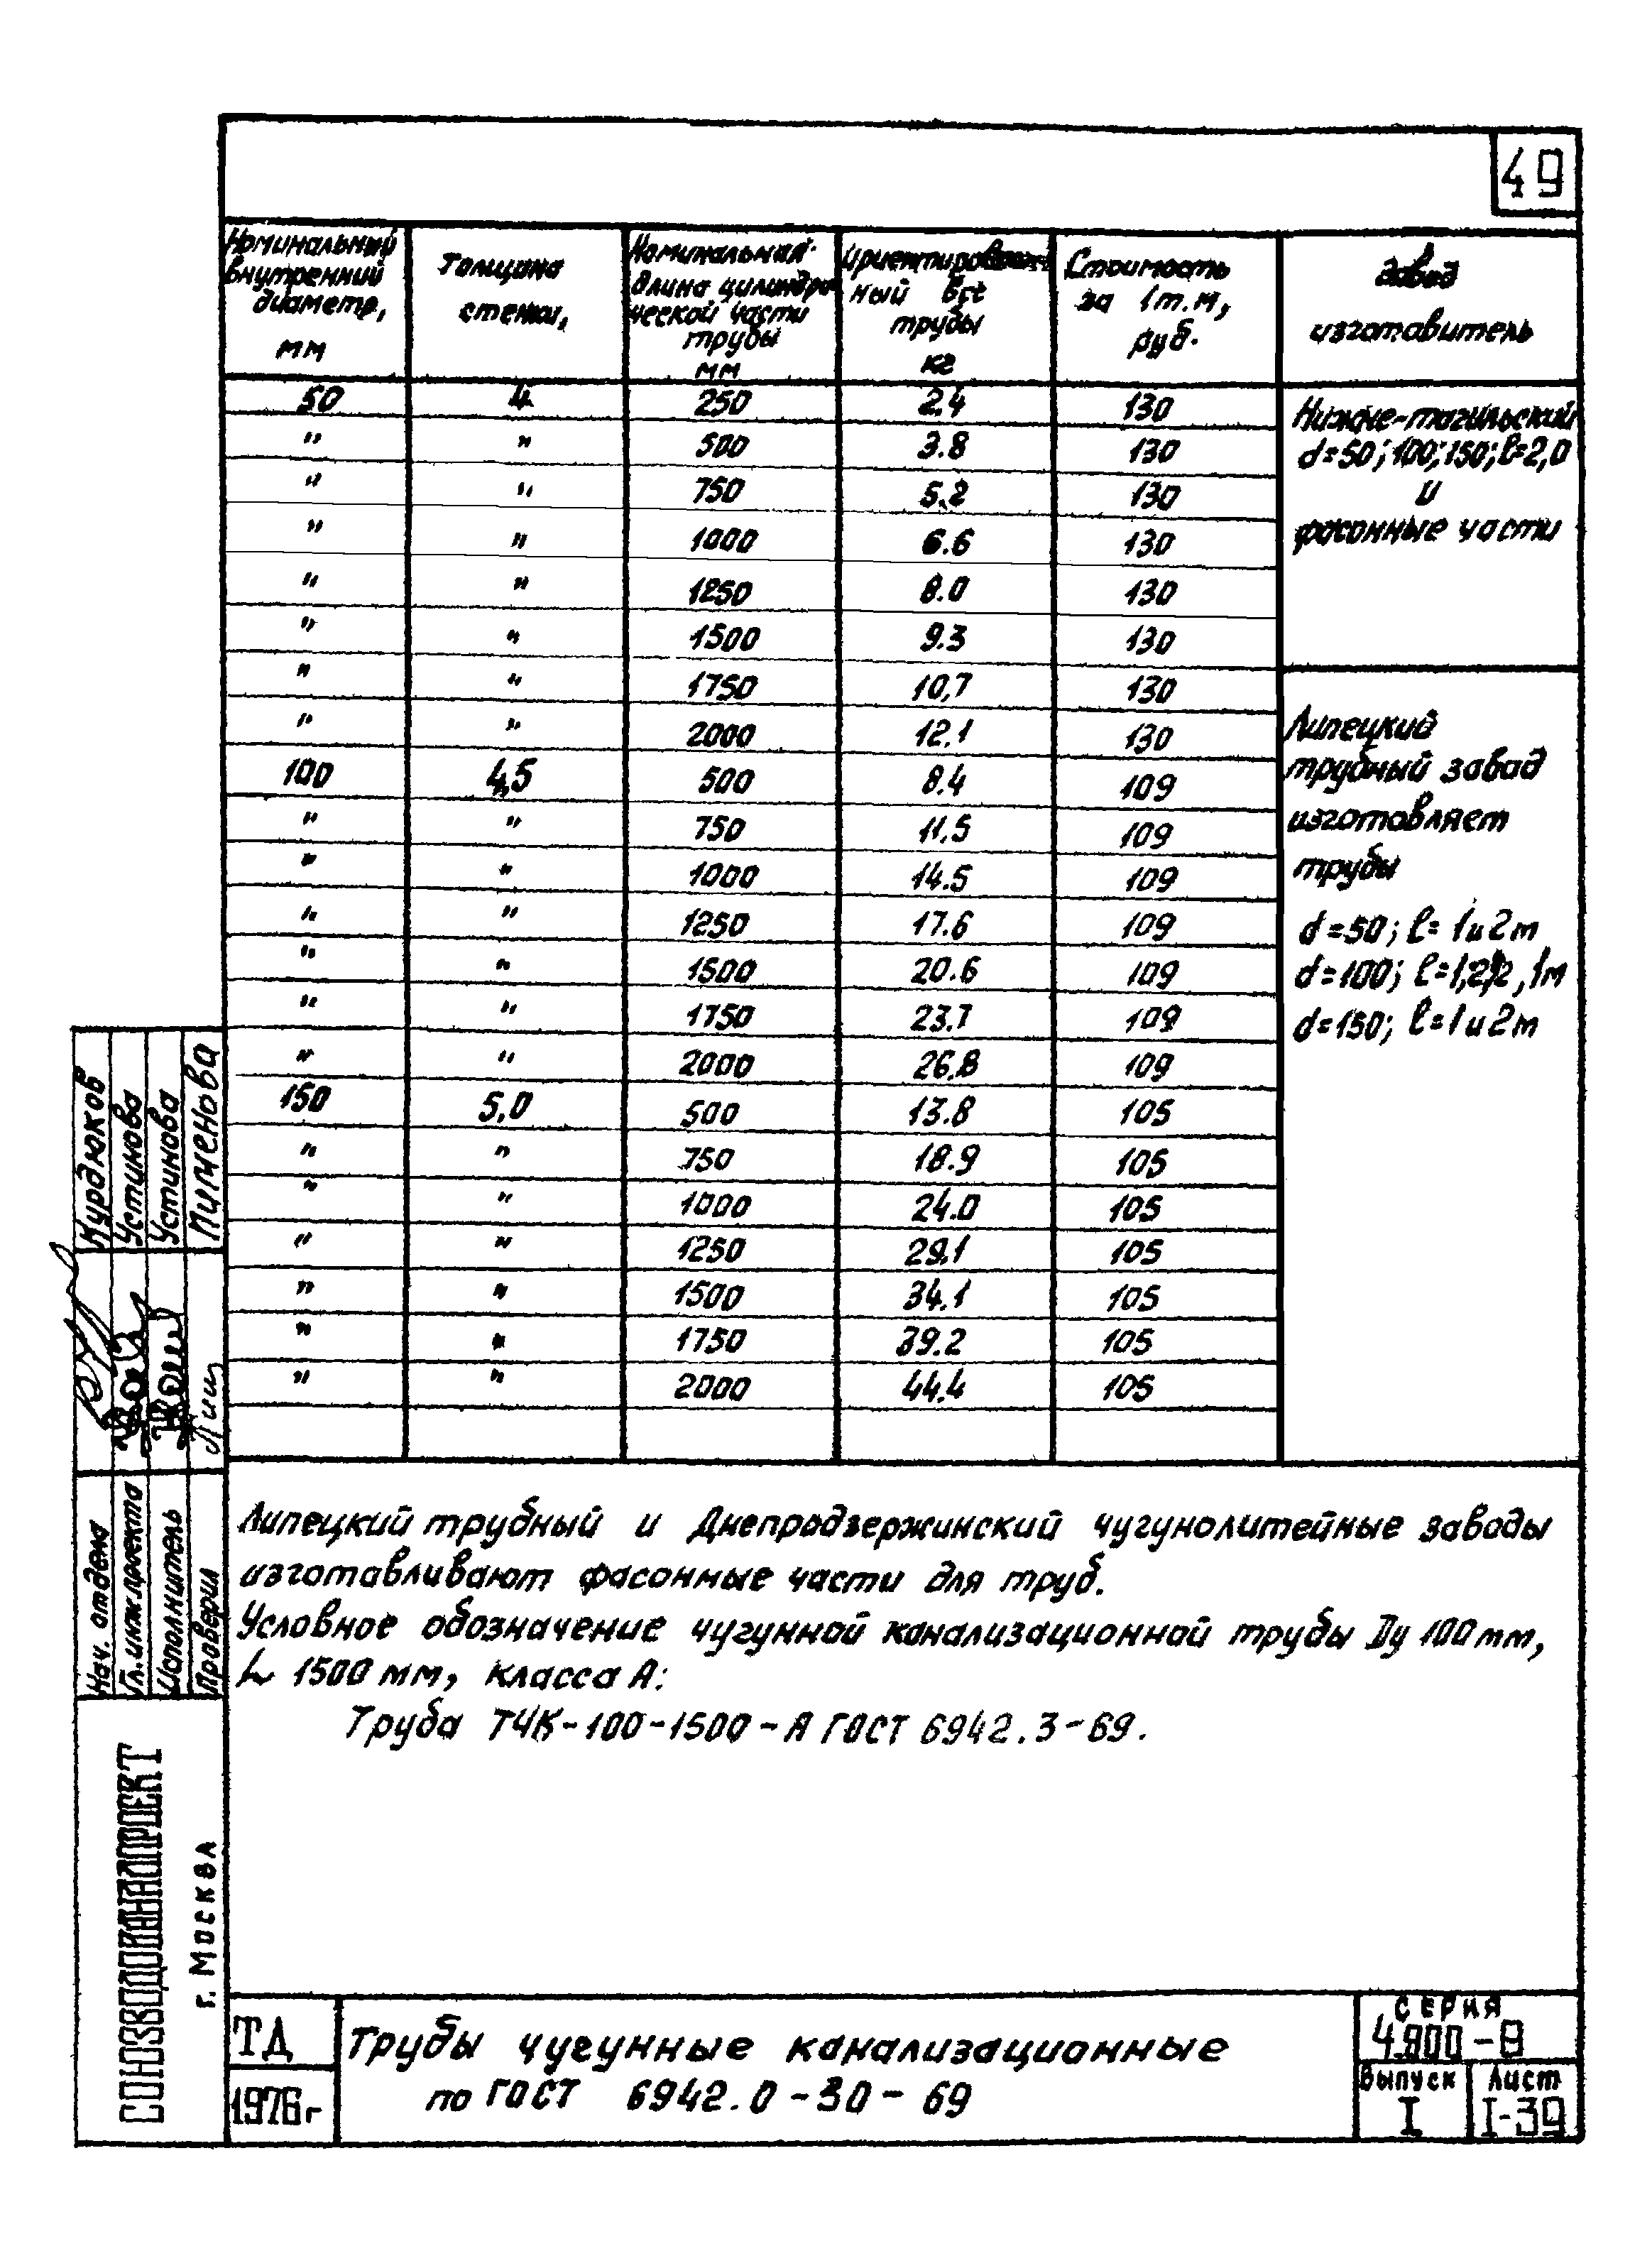 49
Номинальный внутренний диаметр, мм | Толщина стенки, | Номинальная длина цилиндрической части трубы мм | Ориентировочный вес трубы кг | Стоимость за 1т.м, руб. | Завод изготовитель
50 4 250 2.4 130
" " 500 3.8 130
" " 750 5.2 130
" " 1000 6.6 130
" " 1250 8.0 130
" " 1500 9.3 130
" " 1750 10,7 130
" " 2000 12.1 130
100 4,5 500 8.4 109
" " 750 11.5 109
" " 1000 14.5 109
" " 1250 17.6 109
" " 1500 20.6 109
" " 1750 23.7 109
" " 2000 26,8 109
150 5,0 500 13.8 105
" " 750 18.9 105
" " 1000 24.0 105
" " 1250 29.1 105
" " 1500 34.1 105
" " 1750 39.2 105
" " 2000 44.4 105
Нижне-тагильский
d=50; 100; 150; ℓ=2,0
и
фасонные части
Липецкий
трубный завод
изготовляет
трубы
d=50; ℓ= 1 и 2м
d=100; ℓ=
d=150; ℓ=1 и 2м
Липецкий трубный и Днепродзержинский чугунолитейные заводы
изготавливают фасонные части для труб.
Условное обозначение чугунной канализационной трубы Ду 100мм,
L 1500 мм, класса А:
Труба ТЧК-100-1500-А ГОСТ 6942.3-69.
Нач. отдела Курдюков
Гл. инж. проекта Устинова
Исполнитель Устинова
Проверил Пименова
СОЮЗВОДОКАНАЛПРОЕКТ
г. Москва
ТД
1976г
Трубы чугунные канализационные
по ГОСТ 6942.0-30-69
СЕРИЯ
4.900-8
Выпуск
I
Лист
I-39